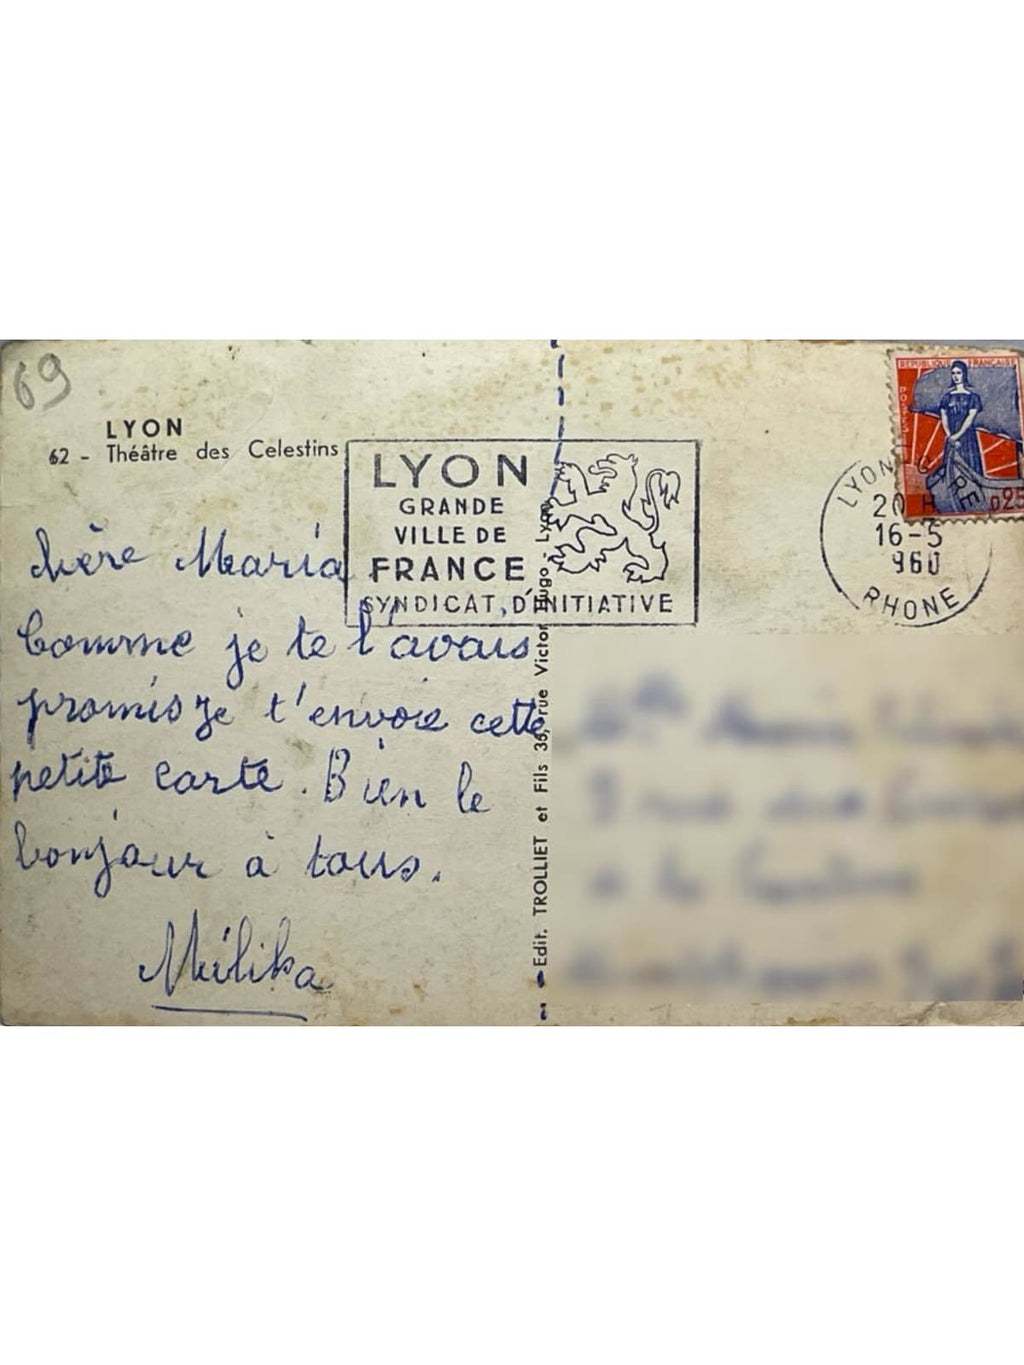 69
LYON
62 - Théâtre des Celestins
LYON
GRANDE
VILLE DE
FRANCE
SYNDICAT, D'INITIATIVE
REPUBLIQUE FRANÇAISE
POSTES
0,25
LYON GARE
20 H
16-5
960
RHONE
Chère Maria
Comme je te l'avais
promis je t'envoie cette
petite carte. Bien le
bonjour à tous.
Mélika
Edit. TROLLIET et Fils 35, rue Victor Hugo - Lyon